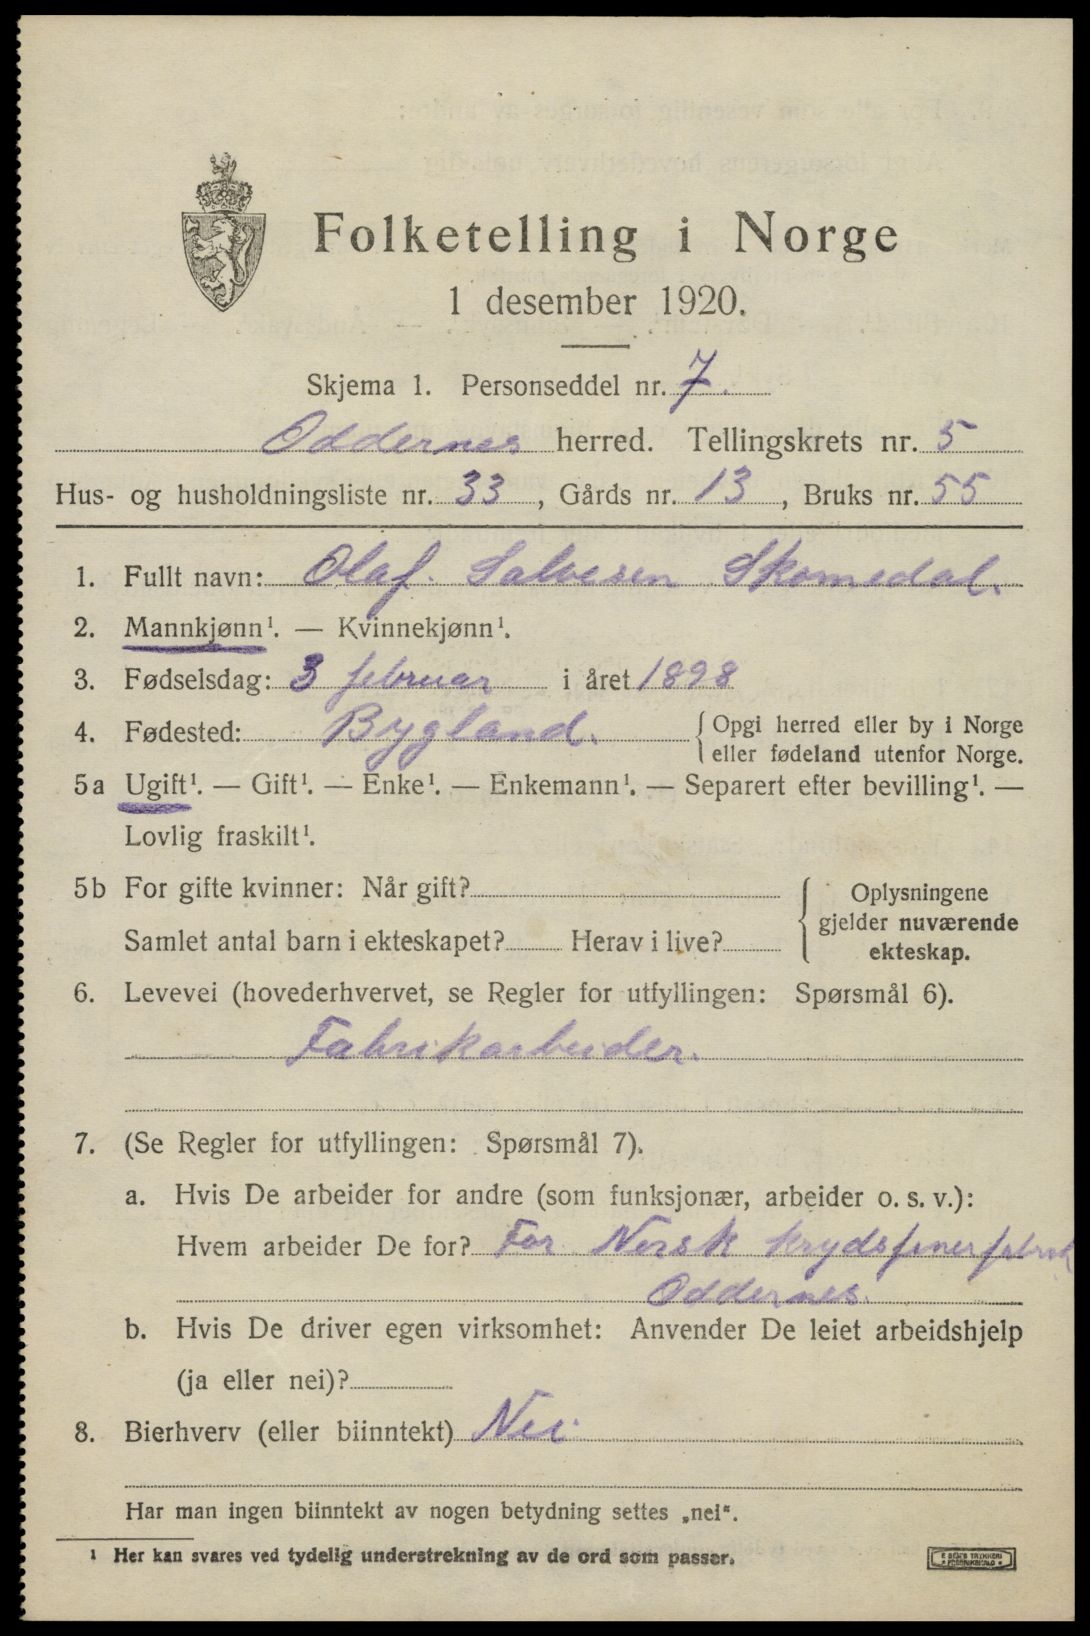 Folketelling i Norge
1 desember 1920.
Skjema 1. Personseddel nr. 7.
Oddernes herred. Tellingskrets nr. 5
Hus- og husholdningsliste nr. 33, Gårds nr. 13, Bruks nr. 55
1. Fullt navn: Olaf. Salvesen Skomedal.
2. Mannkjønn¹. — Kvinnekjønn¹.
3. Fødselsdag: 3 februar i året 1898
4. Fødested: Bygland. { Opgi herred eller by i Norge
eller fødeland utenfor Norge.
5a Ugift¹. — Gift¹. — Enke¹. — Enkemann¹. — Separert efter bevilling¹. —
Lovlig fraskilt¹.
5b For gifte kvinner: Når gift?
Samlet antal barn i ekteskapet? Herav i live?
{ Oplysningene
gjelder nuværende
ekteskap.
6. Levevei (hovederhvervet, se Regler for utfyllingen: Spørsmål 6).
Fabrikarbeider.
7. (Se Regler for utfyllingen: Spørsmål 7).
a. Hvis De arbeider for andre (som funksjonær, arbeider o. s. v.):
Hvem arbeider De for? For Norsk krydsfinerfabrik
Oddernes.
b. Hvis De driver egen virksomhet: Anvender De leiet arbeidshjelp
(ja eller nei)?
8. Bierhverv (eller biinntekt) Nei
Har man ingen biinntekt av nogen betydning settes „nei“.
¹ Her kan svares ved tydelig understrekning av de ord som passer.